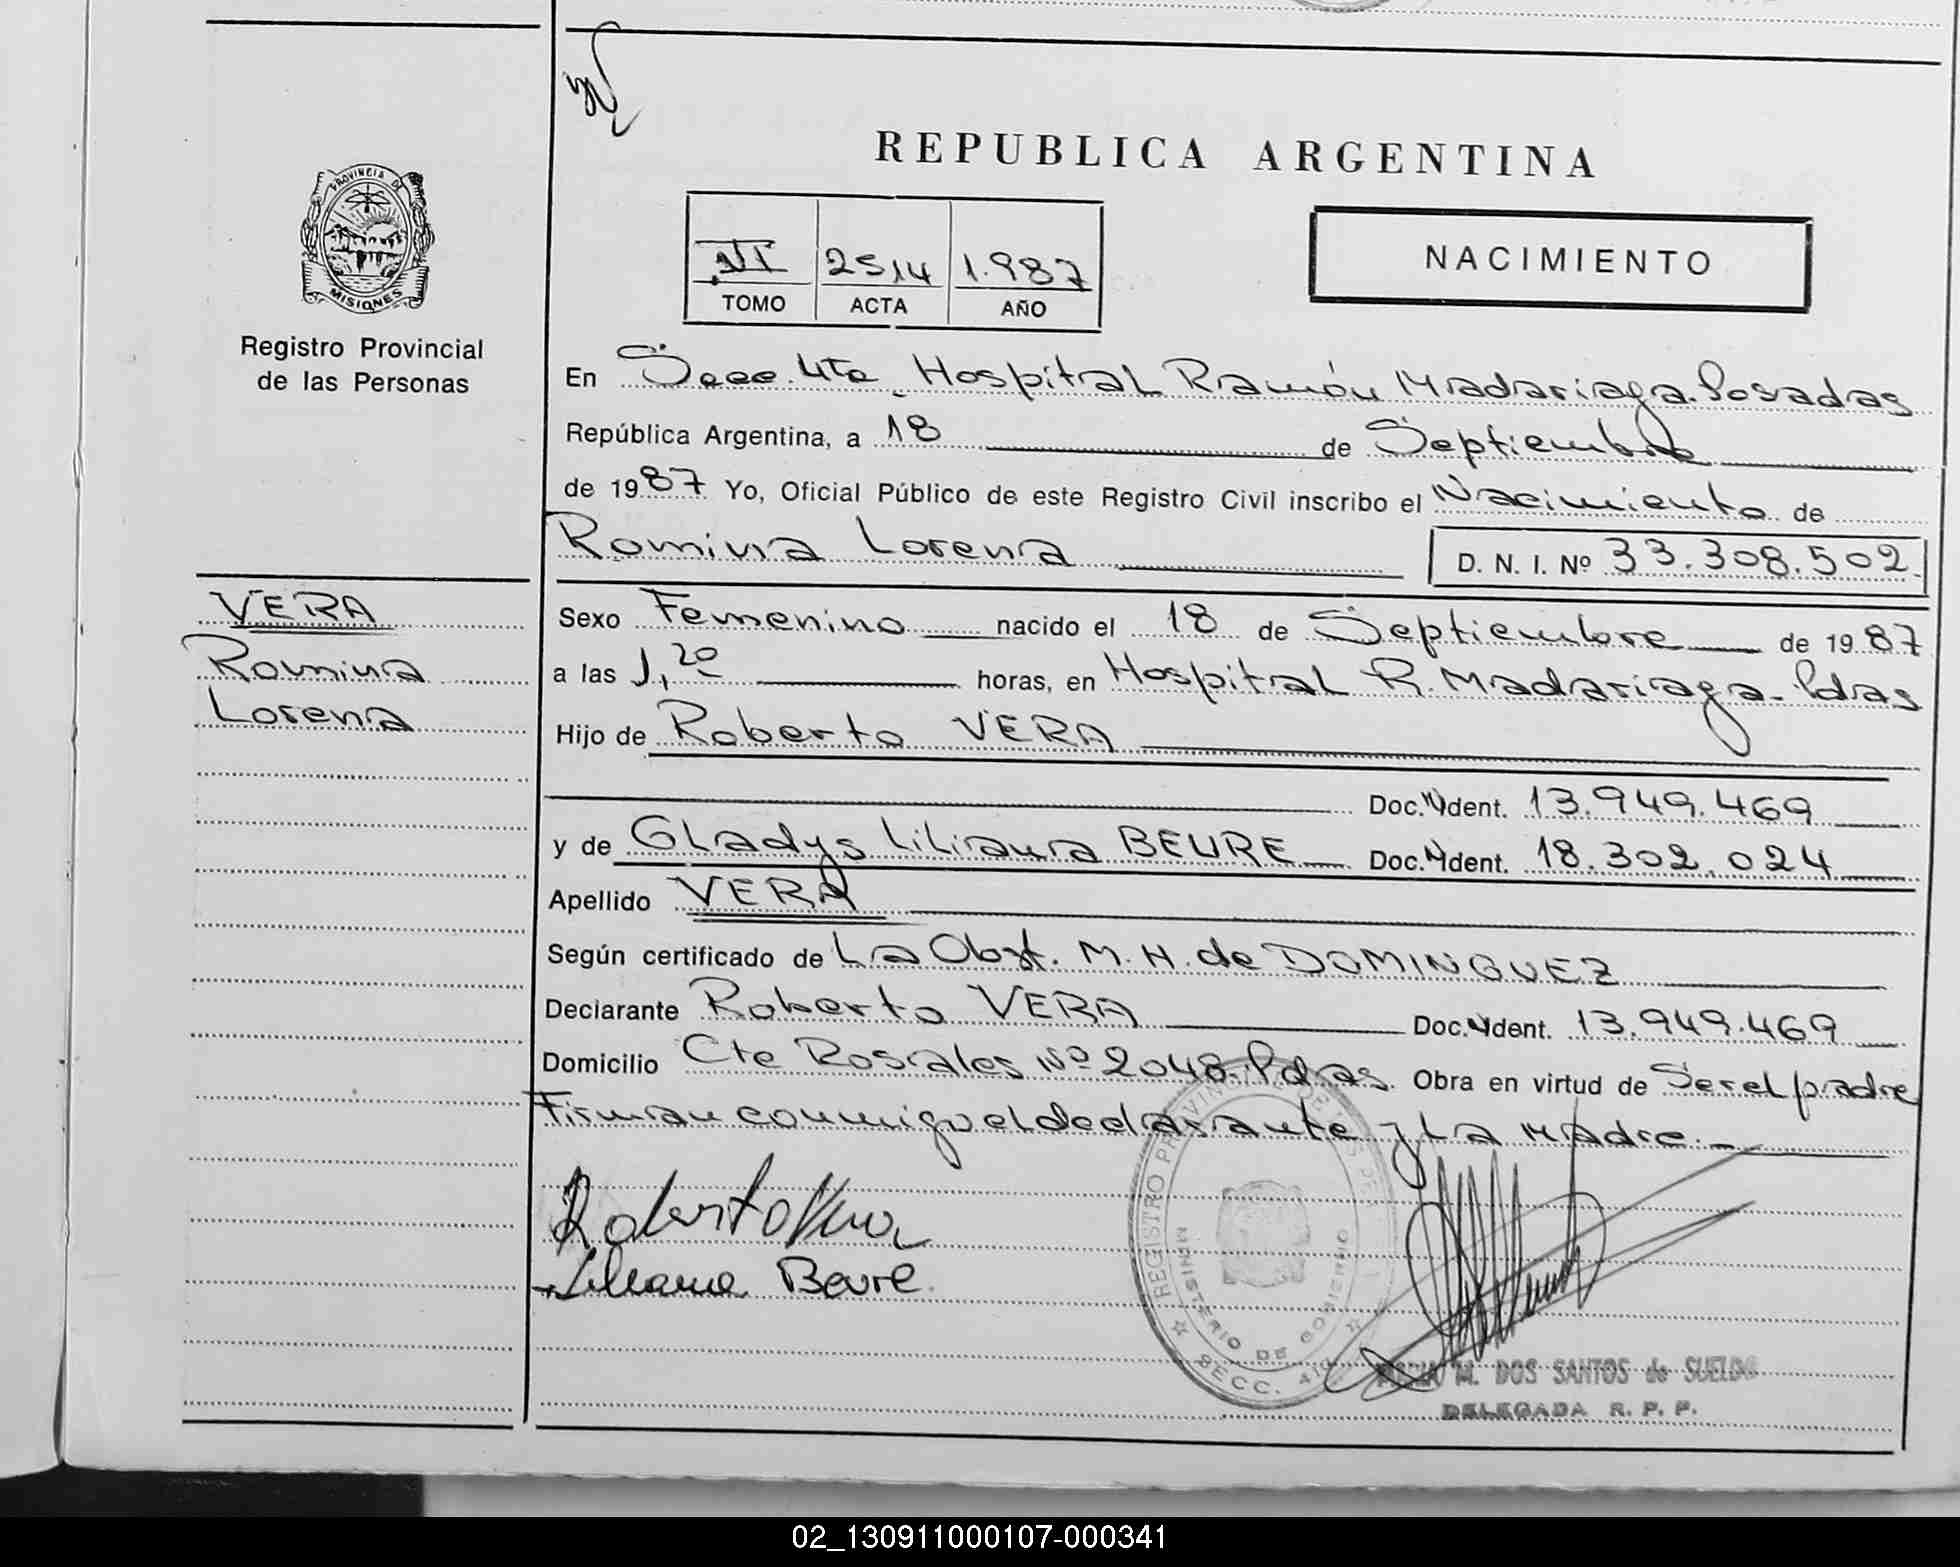 REPUBLICA ARGENTINA
PROVINCIA DE
MISIONES
Registro Provincial
de las Personas
VI 2514 1.987
TOMO ACTA AÑO
NACIMIENTO
En Secc. 4ta Hospital Ramón Madariaga. Posadas
República Argentina, a 18 de Septiembre
de 1987 Yo, Oficial Público de este Registro Civil inscribo el Nacimiento de
Romina Lorena D. N. I. Nº 33.308.502
VERA
Romina
Lorena
Sexo Femenino nacido el 18 de Septiembre de 1987
a las 1,20 horas, en Hospital R. Madariaga. Pdas
Hijo de Roberto VERA
Doc. Ident. 13.949.469
y de Gladys Liliana BEURE Doc. Ident. 18.302.024
Apellido VERA
Según certificado de La Obst. M. H. de DOMINGUEZ
Declarante Roberto VERA Doc. Ident. 13.949.469
Domicilio Cte Rosales Nº 2048. Pdas. Obra en virtud de Ser el padre
Firman conmigo el declarante y La Madre.
Roberto Vera
Liliana Beure.
REGISTRO
MINISTERIO DE GOBIERNO
SECC.
M. DOS SANTOS de SUELDO
DELEGADA R. P. P.
02_130911000107-000341